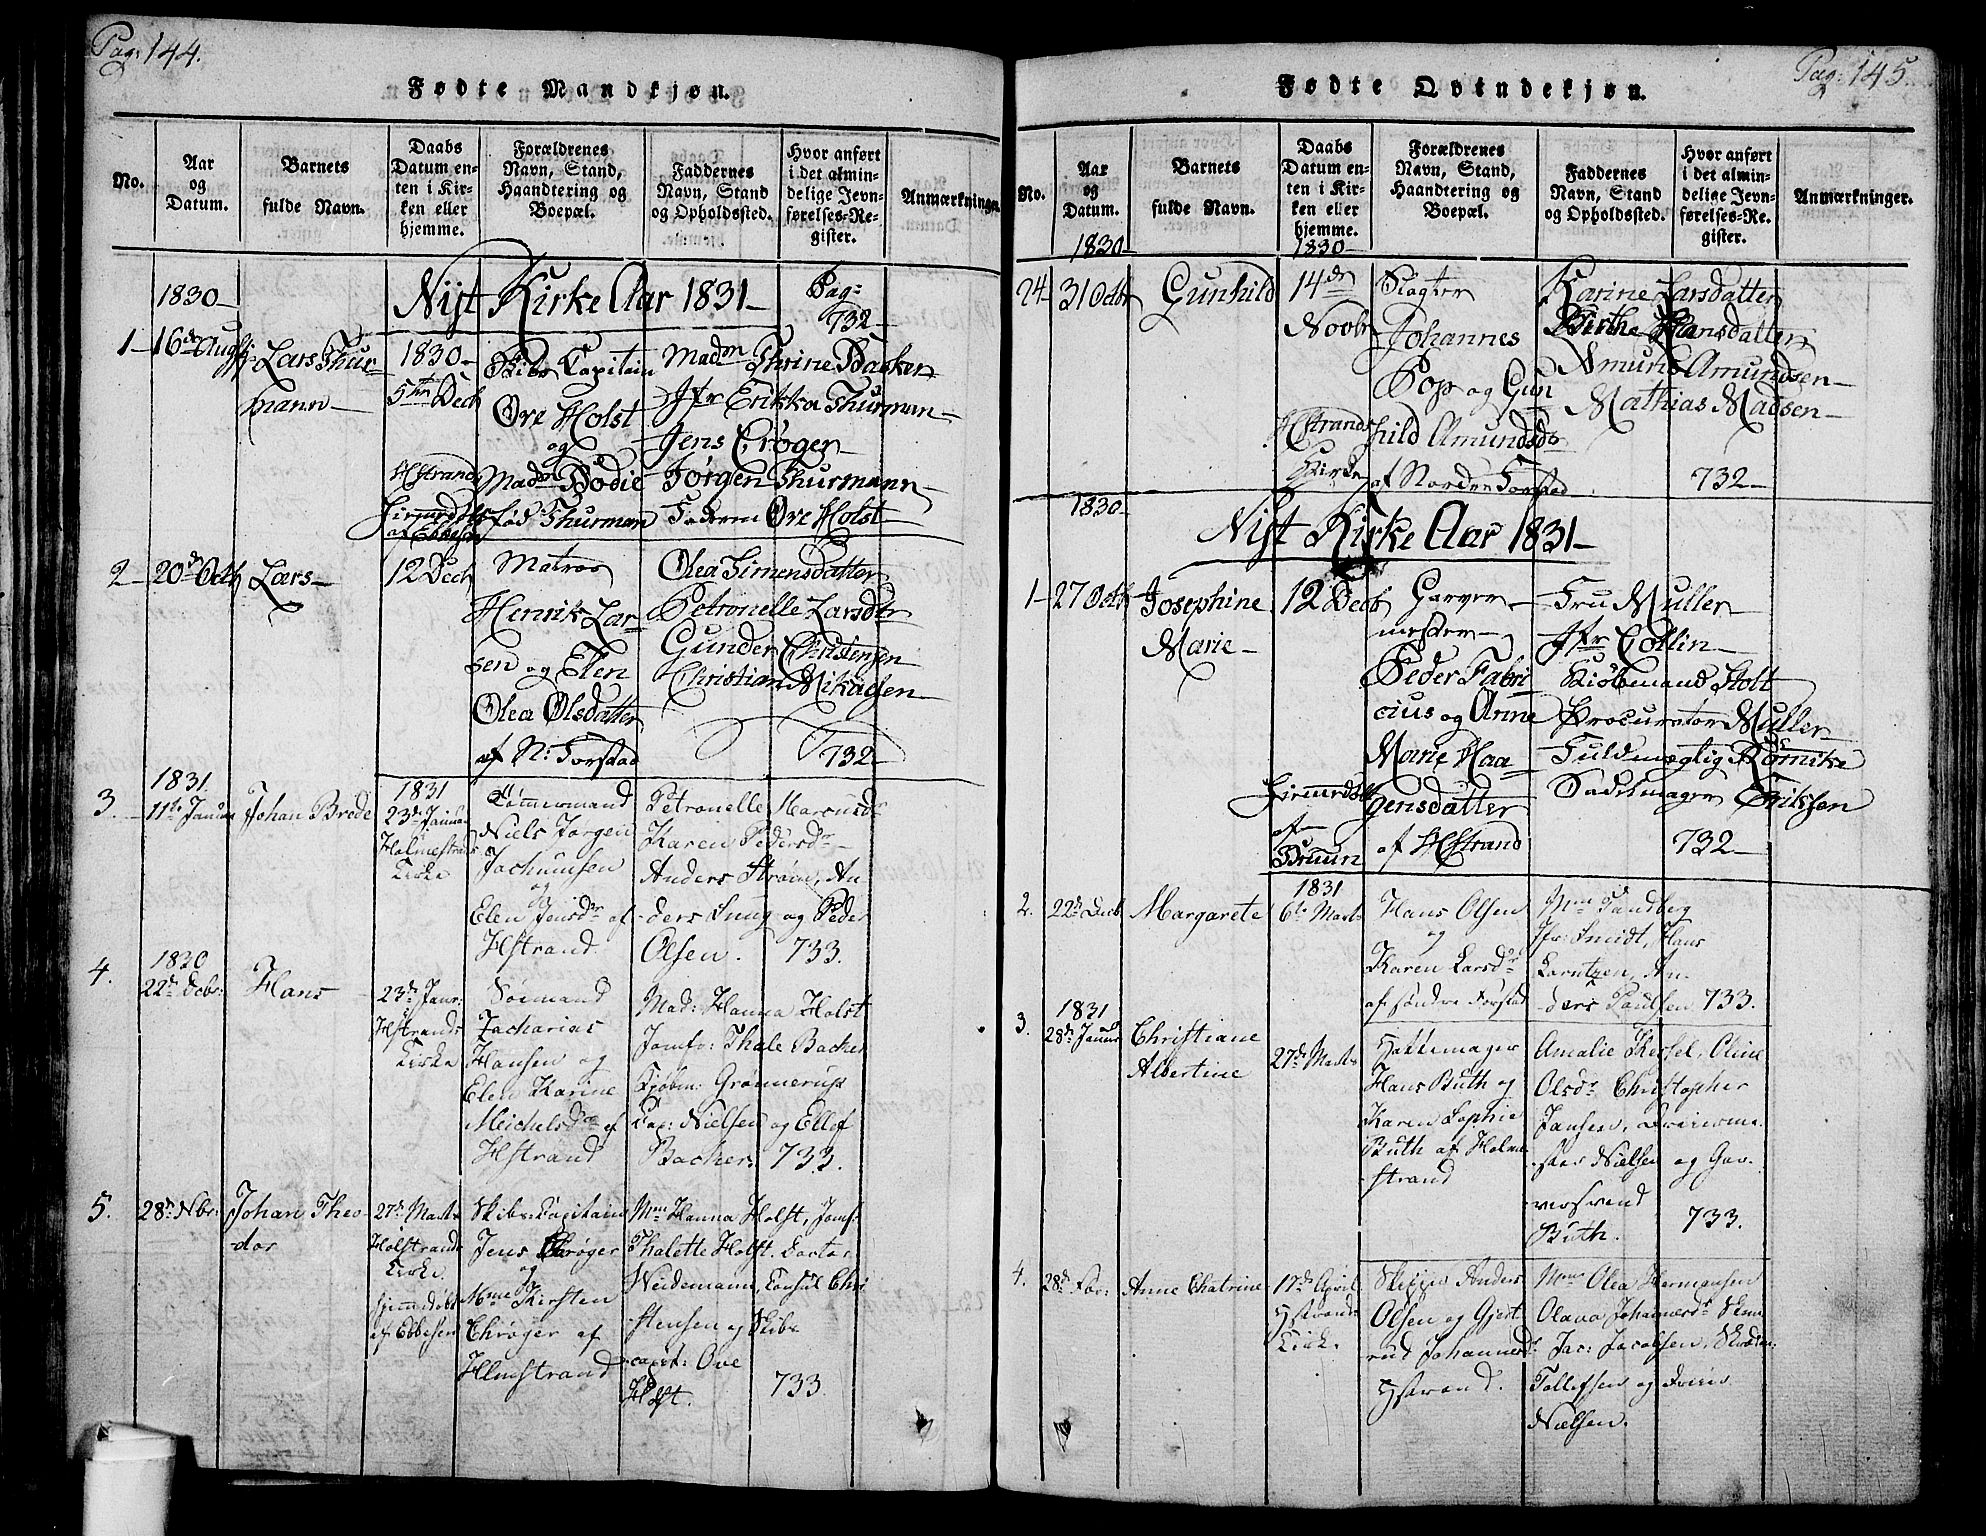 Pag: 144.
Fødte Mandkjøn.
No.
Aar
og
Datum.
Barnets
fulde Navn.
Daabs
Datum en-
ten i Kir-
ken eller
hjemme.
Forældrenes
Navn, Stand,
Haandtering og
Boepæl.
Faddernes
Navn, Stand
og Opholdssted.
Hvor anført
i det almin-
delige Jevn-
førelses-Re-
gister.
Anmærkninger.
1830-
Nyt Kirke Aar 1831-
Pag:
732-
1-
16de Augst
Lars Thur-
mann-
1830-
5te Decb
HStrand
af Ebbesen
Skibs Capitain
Ove Holst
og
Madm Bodie
fød Thurman
Madm Thrine Backer
Jfr Erikka Thurman-
Jens Crøger
Jørgen Thurmann-
Faderen Ove Holst-
2-
20de Octb
Lars-
12 Decb
Matros
Henrik Lar-
sen og Elen
Olea Olsdatter
af N: Forstad
Olea Simensdatter
Petronelle Larsdtr
Gunder Christensen
Christian Mikaelsen-
732-
1831.
3.
11te Januar
Johan Brede
1831
23de Januar
Holmestrands
Kirke
Tømmermand
Niels Jørgen
Jochumsen
og
Elen Jensdr af
HStrand
Petronelle Marcusdr
Karen Pedersdr-
Anders Strøm, An-
ders Smug og Peder
Olsen.
733.
1830
4.
22de Decbr:
Hans
23de Janr:
HStrands
Kirke
Søemand
Zacharias
Hansen og
Elen Karine
Meichelsdr af
HStrand
Mad: Hanna Holst
Jomfr: Thale Backer
Kjøbm: Grønnerup
Cap: Nielsen og Ellef
Backer.
733.
5.
28de Nbr:
Johan Theo-
dor
27de Marts
Holstrands
Kirke.
hjemmedøbt
af Ebbesen
Skibs-Capitain
Jens Chrøger
og
Mme Kirsten
Chrøger af
Hlmstrand
Mme Hanna Holst, Jomf:
Thalette Holst. Doctor
Weidemann, Consul Chri-
stensen og Skibs-
capt: Ove
Holst.
733.
Pag: 145.
Fødte Qvindekjøn.
No.
Aar
og
Datum.
Barnets
fulde Navn.
Daabs
Datum en-
ten i Kir-
ken eller
hjemme.
Forældrenes
Navn, Stand,
Haandtering og
Boepæl.
Faddernes
Navn, Stand
og Opholdssted.
Hvor anført
i det almin-
delige Jevn-
førelses-Re-
gister.
Anmærkninger.
1830-
1830-
24-
31 Octbr
Gunhild
14de
Novbr
HStrands
Kirke
Slagter
Johannes
Pop og Gun
hild Amundsdr
af Nordre Forstad
Karine Larsdatter
Birthe Hansdatter
Amund Amundsen-
Mathias Madsen-
732-
1830-
Nyt Kirke Aar 1831-
1-
27 Octb
Josephine
Marie-
12 Decb
hjemmedøbt
af
Bruun
Garver-
mester-
Peder Fabri
cius og Anne
Marie Haa
gensdatter
af HStrand
Fru Muller-
Jfr Collin-
Kiøbmand Stolt
Procurator Muller-
Fuldmægtig Römcke
Sadelmager Eriksen
732-
2.
22de Decb
Margarete
1831
6te Marts
Hans Olsen
og
Karen Larsdr
af søndre Forstad
Mme Sandberg
Jfr: Smidt, Hans
Lorntzen, An-
ders Paulsen
733.
1831
3.
28de Januar
Christiane
Albertine
27de Marts
Hattemager
Hans Buth og
Karen Sophie
Buth af Holm-
strand
Amalie Kessel, Oline
Olsdr Christopher
Jansen, Dreierme-
ster Nielsen og Gar-
versvend
Buth.
733.
4.
28de Fbr:
Anne Chatrine
17de April
Hstrands
Kirk.
Skipper Anders
Olsen og Gjert
rud Johannesdr
Hstrand.
Mme Olea Hermansen
Olava Johannesdr
Jac: Jacobsen,
Tollefsen og
Nielsen.